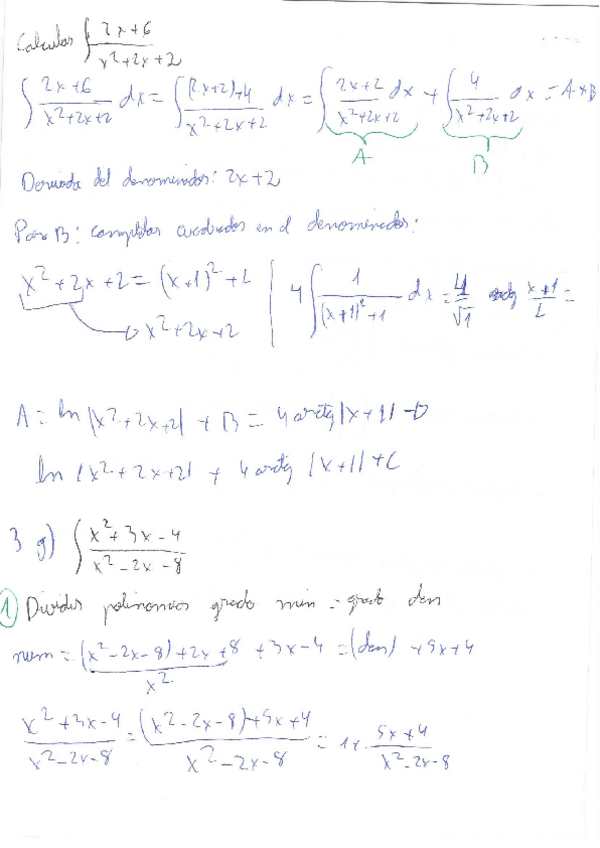 Calcular ∫ 2x+6 / x²+2x+2
∫ 2x+6 / x²+2x+2 dx = ∫ (2x+2)+4 / x²+2x+2 dx = ∫ 2x+2 / x²+2x+2 dx + ∫ 4 / x²+2x+2 dx = A+B
A B
Derivada del denominador: 2x+2
Para B: completar cuadrados en el denominador:
x²+2x+2 = (x+1)²+1 | 4 ∫ 1 / (x+1)²+1 dx = 4/√1 arctg x+1 / 1 =
x²+2x+2
A = ln |x²+2x+2| + B = 4 arctg |x+1| →
ln |x²+2x+2| + 4 arctg |x+1| + C
3 g) ∫ x²+3x-4 / x²-2x-8
1 Dividir polinomios grado num = grado den
num = (x²-2x-8)+2x+8 +3x-4 = (den) +5x+4
x²
x²+3x-4 / x²-2x-8 = (x²-2x-8)+5x+4 / x²-2x-8 = 1+ 5x+4 / x²-2x-8